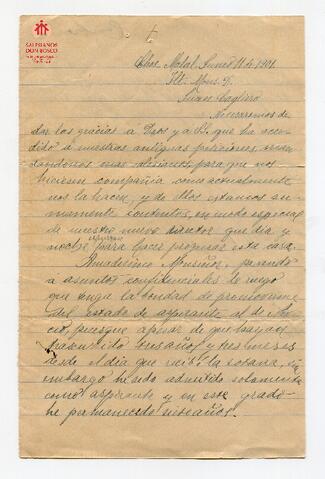 SALESIANOS
DON BOSCO
Chos Malal, Junio 11 de 1901.
Ilt. Mons. D.
Juan Cagliero
No cesaremos de
dar las gracias a Dios y a S. que ha acce-
dido a nuestras antiguas peticiones, man-
dandonos mas que nos
hiciesen compañia como actualmente
nos la hacen, y de ellos estamos su-
mamente contentos, en modo especial
de nuestro nuevo director que dia y
noche para hacer progresar esta casa.
Amadisimo Monseñor, pasando
á asuntos confidenciales le ruego
que tenga la bondad de promoverme
del estado de aspirante al de
puesque apesar de que hayan
trascurrido tres años y tres meses
desde el dia que recibí la sotana, sin
embargo hé sido admitido solamente
como aspirante y en este grado
he permanecido